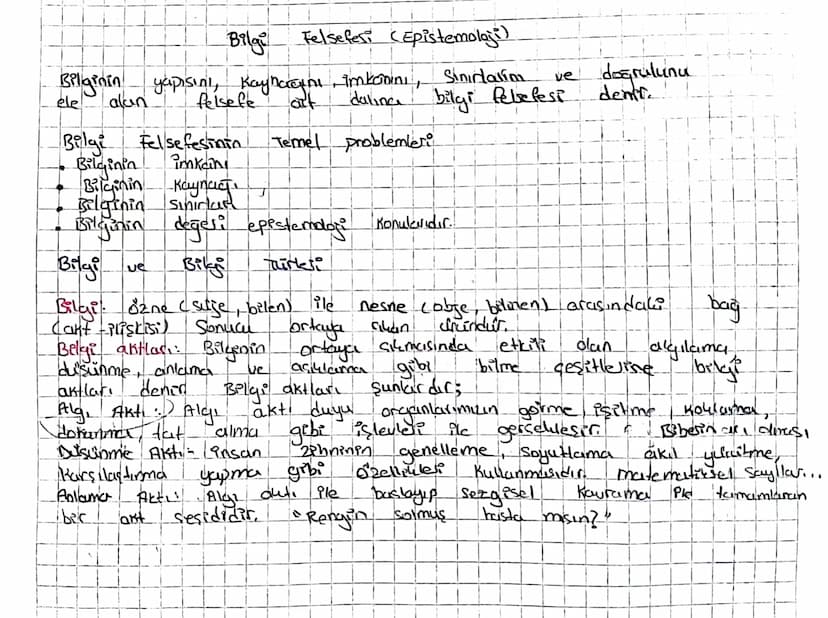 Bilgi Felsefesi (Epistemoloji)
Bilginin yapısını, kaynağını, imkanını, sınırlarını ve doğrulunu
ele alan felsefe alt dalına bilgi felsefesi denir.
Bilgi Felsefesinin Temel problemleri
• Bilginin imkanı
• Bilginin kaynağı,
• Bilginin sınırları
• Bilginin değeri epistemoloji konularıdır.
Bilgi ve Bilgi Türleri
Bilgi: özne (suje, bilen) ile nesne (obje, bilinen) arasındaki bağ
(akt-ilişkisi) sonucu ortaya çıkan üründür.
Bilgi aktları: Bilginin ortaya çıkmasında etkili olan algılama,
düşünme, anlama ve açıklama gibi bilme çeşitlerine bilgi
aktları denir. Bilgi aktları şunlardır;
Algı Aktı :) Algı aktı duyu organlarımızın görme, işitme, koklama,
dokunma, tat alma gibi işlevleri ile gerçekleşir. Biberin acı olması
Düşünme Aktı- İnsan zihninin genelleme, soyutlama akıl yürütme,
karşılaştırma yapma gibi özellikleri kullanmasıdır. matematiksel sayılar...
Anlama Aktı: Algı aktı ile başlayıp sezgisel kavrama ile tamamlanan
bir akt çeşididir. "Rengin solmuş hasta mısın?"